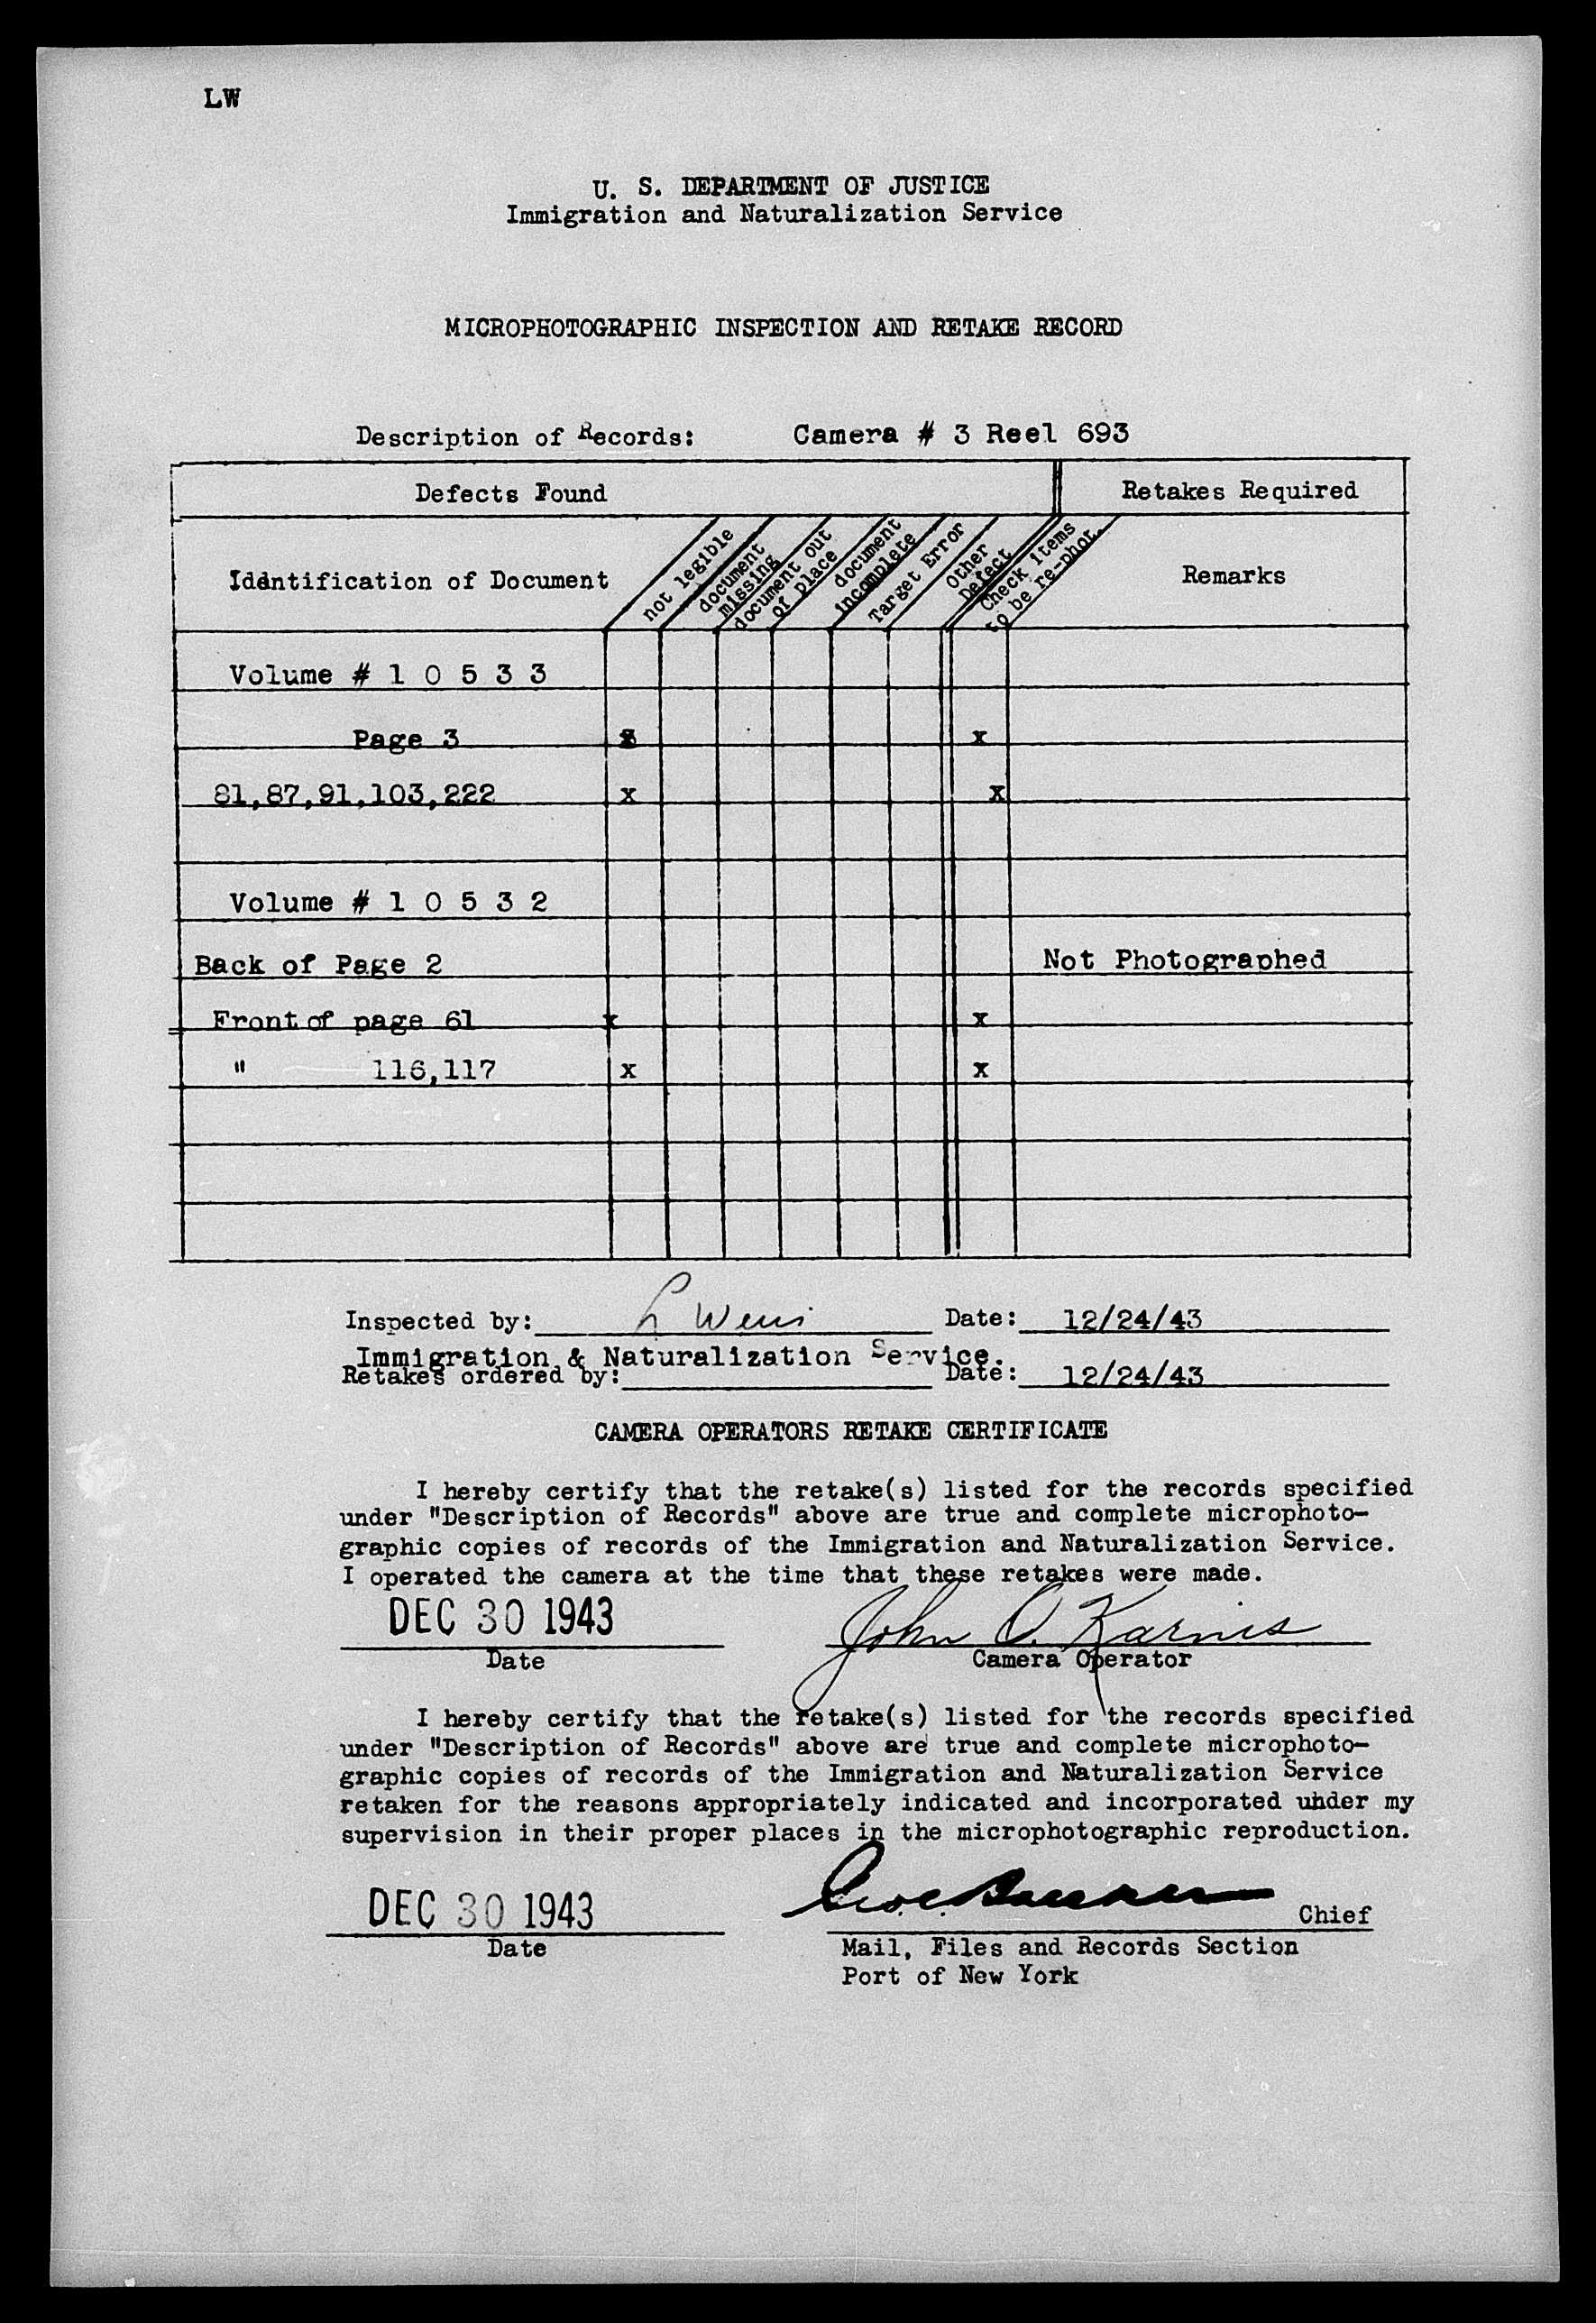 LW
U. S. DEPARTMENT OF JUSTICE
Immigration and Naturalization Service
MICROPHOTOGRAPHIC INSPECTION AND RETAKE RECORD
Description of Records: Camera # 3 Reel 693
Defects Found Retakes Required
Identification of Document
not legible
document missing
document out of place
document incomplete
Target Error
Other Defect
Check items to be re-phot.
Remarks
Volume # 1 0 5 3 3
Page 3 x
81,87,91,103,222 x x
Volume # 1 0 5 3 2
Back of Page 2 Not Photographed
Front of page 61 x x
" 116,117 x x
Inspected by: L Date: 12/24/43
Immigration & Naturalization Service.
Retakes ordered by: Date: 12/24/43
CAMERA OPERATORS RETAKE CERTIFICATE
I hereby certify that the retake(s) listed for the records specified
under "Description of Records" above are true and complete microphoto-
graphic copies of records of the Immigration and Naturalization Service.
I operated the camera at the time that these retakes were made.
DEC 30 1943 John O. Karnis
Date Camera Operator
I hereby certify that the retake(s) listed for the records specified
under "Description of Records" above are true and complete microphoto-
graphic copies of records of the Immigration and Naturalization Service
retaken for the reasons appropriately indicated and incorporated under my
supervision in their proper places in the microphotographic reproduction.
DEC 30 1943 Chief
Date Mail, Files and Records Section
Port of New York